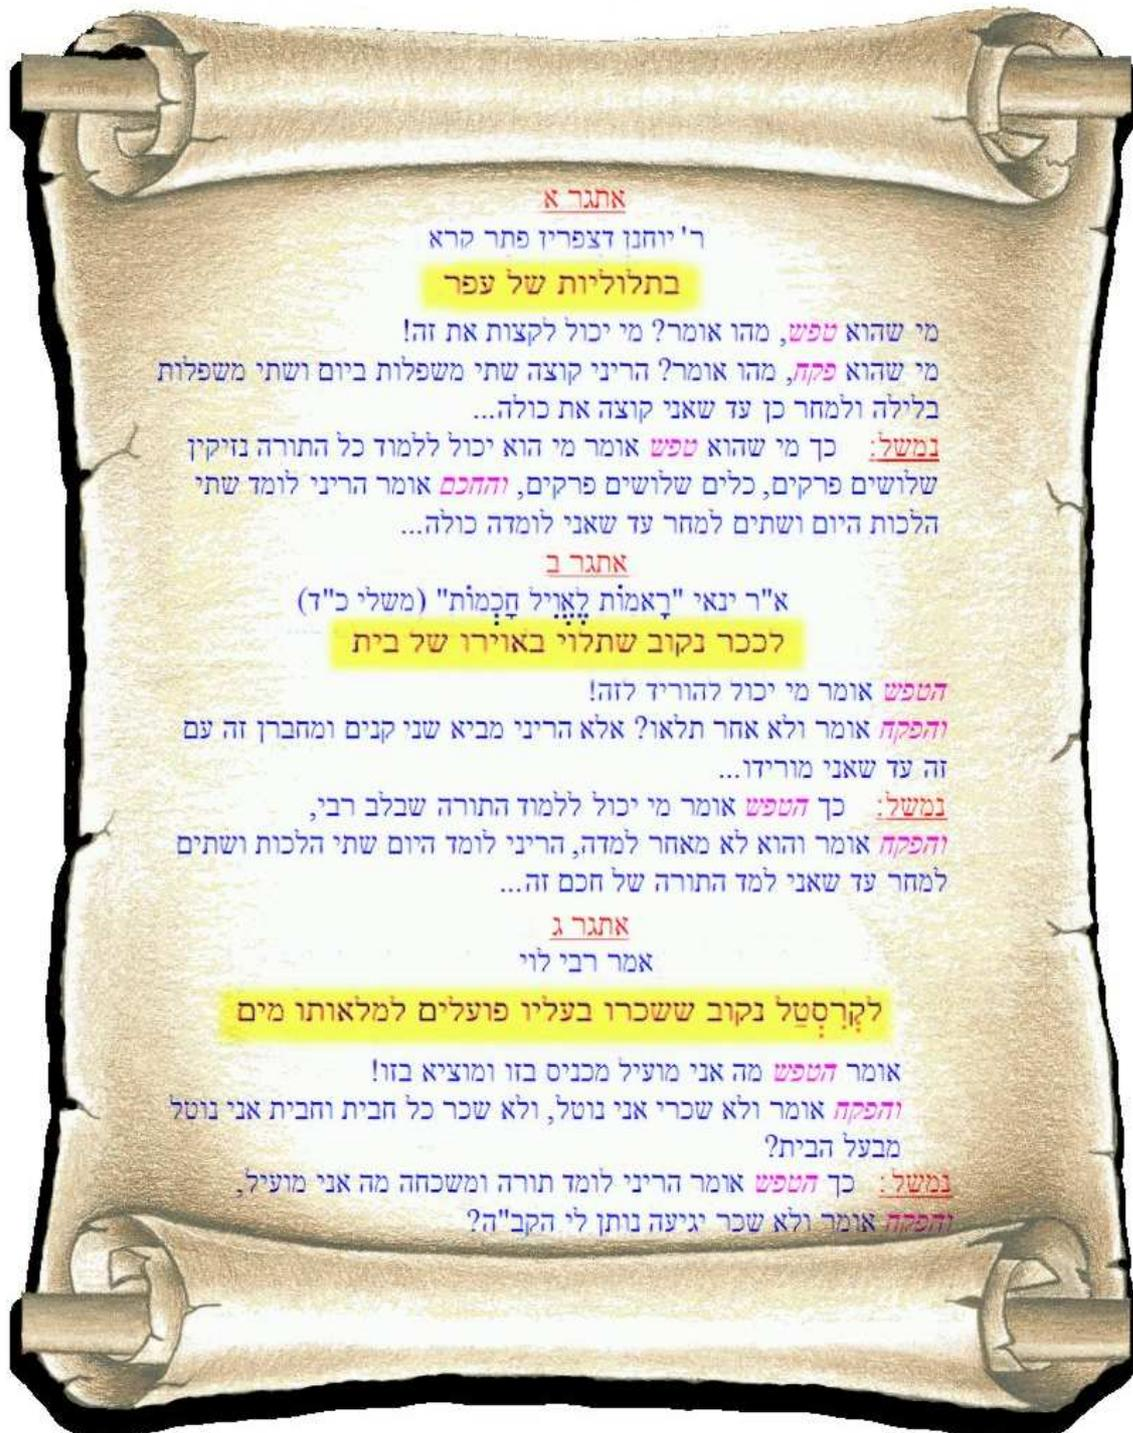 אתגר א
ר' יוחנן דצפרין פתר קרא
בתלוליות של עפר
מי שהוא טפש, מהו אומר? מי יכול לקצות את זה!
מי שהוא פקח, מהו אומר? הריני קוצה שתי משפלות ביום ושתי משפלות
בלילה ולמחר כן עד שאני קוצה את כולה...
נמשל: כך מי שהוא טפש אומר מי הוא יכול ללמוד כל התורה נזיקין
שלושים פרקים, כלים שלושים פרקים, והחכם אומר הריני לומד שתי
הלכות היום ושתים למחר עד שאני לומדה כולה...
אתגר ב
א"ר ינאי "רָאמוֹת לֶאֱוִיל חָכְמוֹת" (משלי כ"ד)
לככר נקוב שתלוי באוירו של בית
הטפש אומר מי יכול להוריד לזה!
והפקח אומר ולא אחר תלאו? אלא הריני מביא שני קנים ומחברן זה עם
זה עד שאני מורידו...
נמשל: כך הטפש אומר מי יכול ללמוד התורה שבלב רבי,
והפקח אומר והוא לא מאחר למדה, הריני לומד היום שתי הלכות ושתים
למחר עד שאני למד התורה של חכם זה...
אתגר ג
אמר רבי לוי
לקְרִסְטַל נקוב ששכרו בעליו פועלים למלאותו מים
אומר הטפש מה אני מועיל מכניס בזו ומוציא בזו!
והפקח אומר ולא שכרי אני נוטל, ולא שכר כל חבית וחבית אני נוטל
מבעל הבית?
נמשל: כך הטפש אומר הריני לומד תורה ומשכחה מה אני מועיל,
והפקח אומר ולא שכר יגיעה נותן לי הקב"ה?